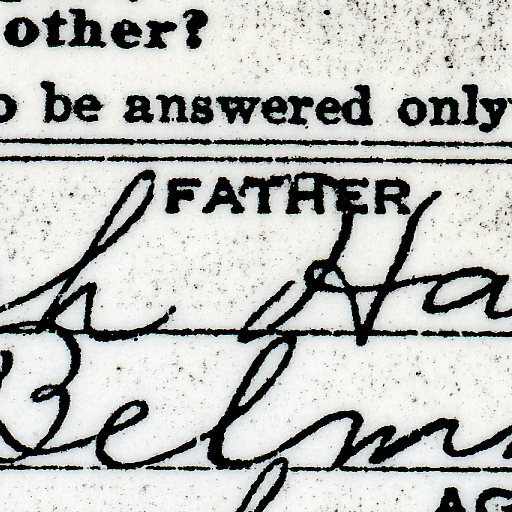 other?
o be answered only
FATHER
h Ha
Belm
AG